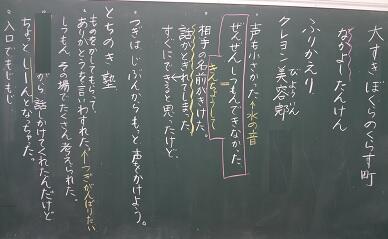 大すきぼくらのくらす町
なかよしたんけん
ふりかえり
クレヨン美容部
びようぶん
・声も小さかった←水の音
ぜんぜんしつもんできなかった
きんちょうして
・相手の名前がきけた。
話がとぎれてしまった
すぐにできると思ったけど、
・つぎはじぶんからもっと声をかけよう。
とちのき塾
ものをかしてもらって、
ありがとうを言いわすれた。←つぎがんばりたい
しつもん その場でたくさん考えられた。
から話しかけてくれたんだけど
ちょっとしーんとなっちゃった。
・入口でもじもじ